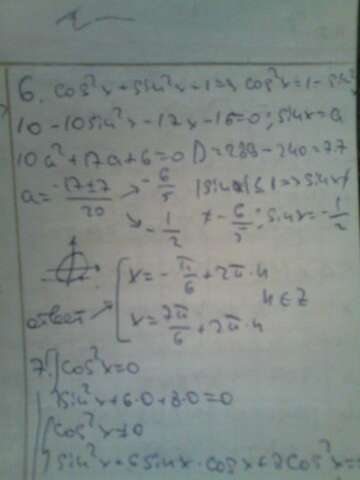 6. cos²x + sin²x + 1 => cos²x = 1 - sin
10 - 10sin²x - 17x - 16 = 0; sinx = a
10a² + 17a + 6 = 0 D = 289 - 240 = 7·7
a = (-17±7)/20 → -6/5 |sinx| ≤ 1 => sinx ≠
↘ -1/2 ≠ -6/5; sinx = -1/2
x = -π/6 + 2π·n
n ∈ Z
ответ
x = 7π/6 + 2π·n
7. cos²x = 0
sin²x + 6·0 + 8·0 = 0
cos²x ≠ 0
sin²x + 6sinx·cosx + 8cos²x =